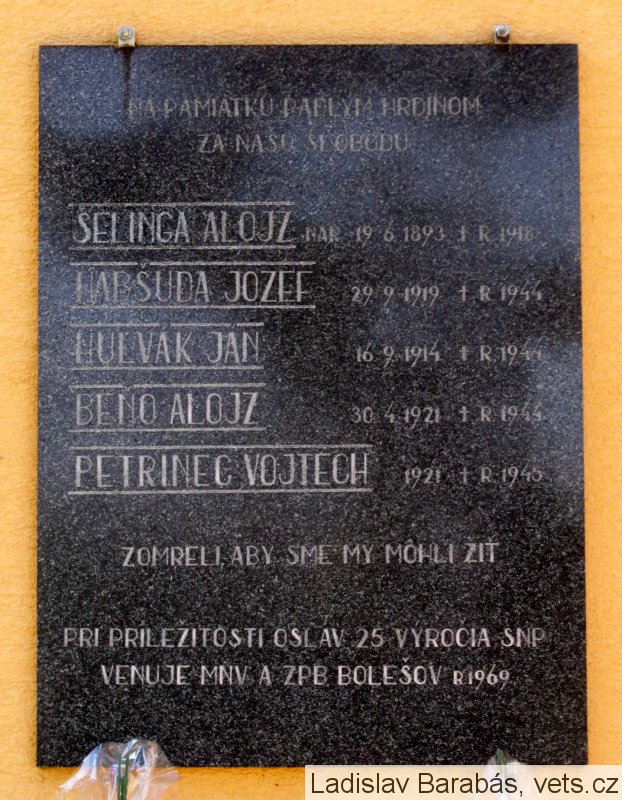 NA PAMIATKU PADLÝM HRDINOM
ZA NAŠU SLOBODU
ŠELINGA ALOJZ NAR. 19. 6. 1893 † R. 1918
HABŠUDA JOZEF 29. 9. 1919 † R. 1944
HULVÁK JÁN 16. 9. 1914 † R. 1944
BEŇO ALOJZ 30. 4. 1921 † R. 1944
PETRINEC VOJTECH 1921 † R. 1945
ZOMRELI, ABY SME MY MÔHLI ŽIŤ
PRI PRÍLEŽITOSTI OSLÁV 25 VÝROČIA SNP
VENUJE MNV A ZPB BOLEŠOV R 1969
Ladislav Barabás, vets.cz